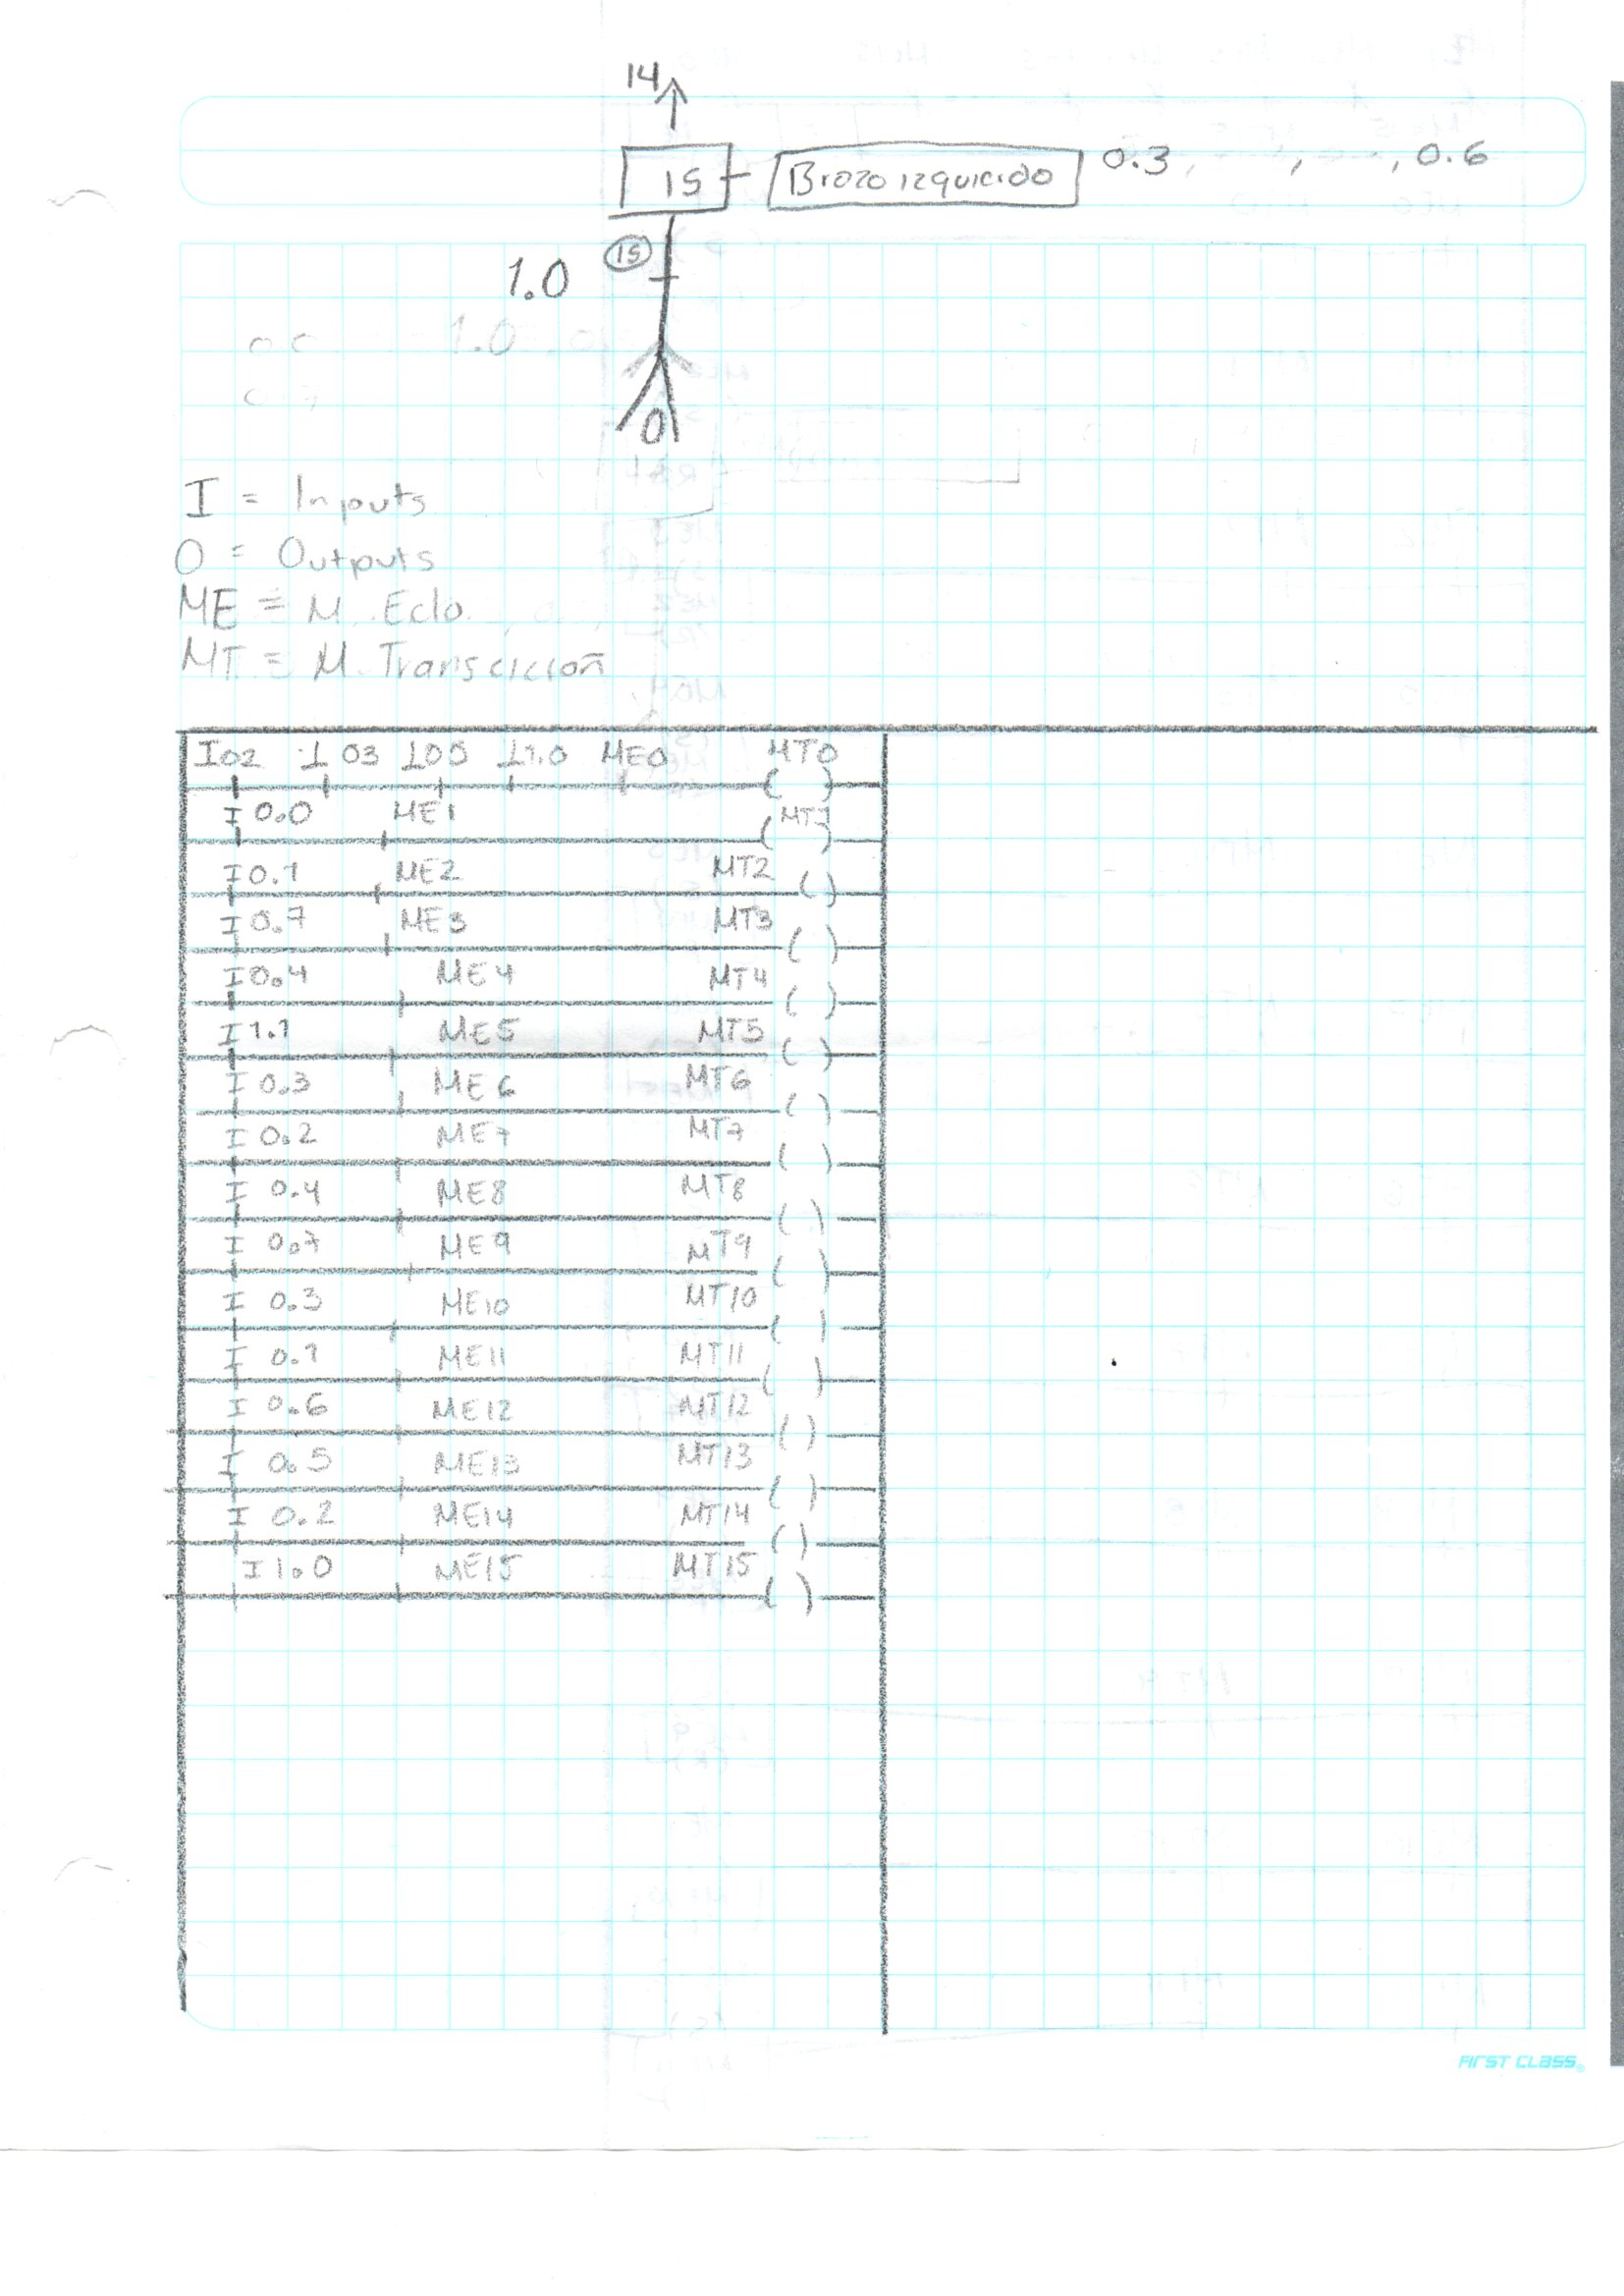 14
15 Brazo izquierdo 0.3, , , 0.6
15
1.0
1.0
0
I = Inputs
O = Outputs
ME = M. Edo.
MT = M. Transcición
I02 I03 I05 I1.0 ME0 MT0
I0.0 ME1 MT1
I0.1 ME2 MT2
I0.7 ME3 MT3
I0.4 ME4 MT4
I1.1 ME5 MT5
I0.3 ME6 MT6
I0.2 ME7 MT7
I0.4 ME8 MT8
I0.7 ME9 MT9
I0.3 ME10 MT10
I0.1 ME11 MT11
I0.6 ME12 MT12
I0.5 ME13 MT13
I0.2 ME14 MT14
I1.0 ME15 MT15
FIRST CLASS